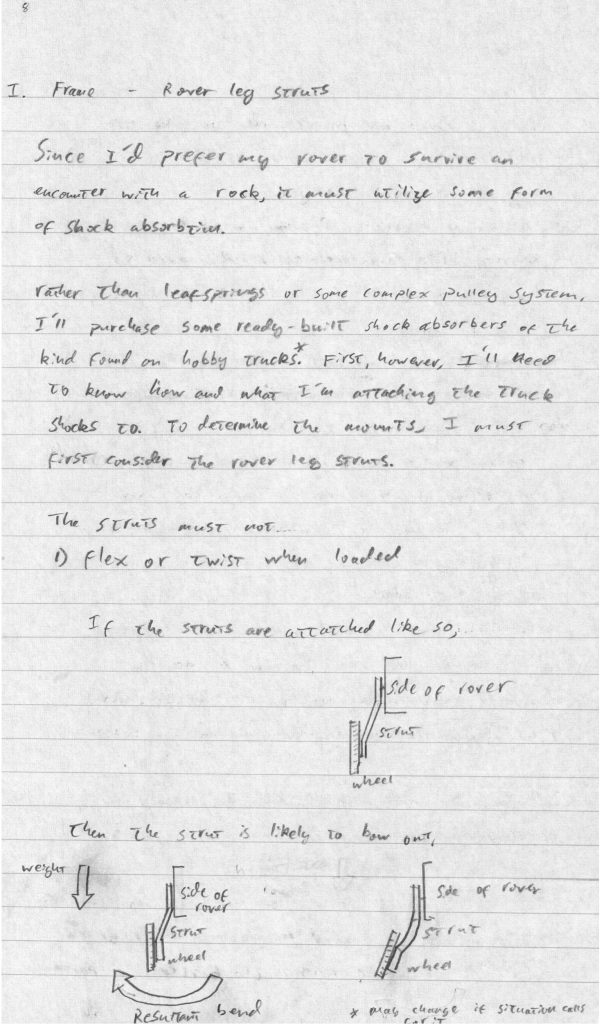 8
I. Frame - Rover leg struts
Since I'd prefer my rover to survive an
encounter with a rock, it must utilize some form
of shock absorbtion.
rather than leafsprings or some complex pulley system,
I'll purchase some ready-built shock absorbers of the
kind found on hobby trucks.* First, however, I'll need
to know how and what I'm attaching the truck
shocks to. To determine the mounts, I must
first consider the rover leg struts.
The struts must not...
1) flex or twist when loaded
If the struts are attatched like so,
side of rover
strut
wheel
Then the strut is likely to bow out,
weight
side of
rover
strut
wheel
Resultant bend
side of rover
strut
wheel
* may change if situation calls
for it